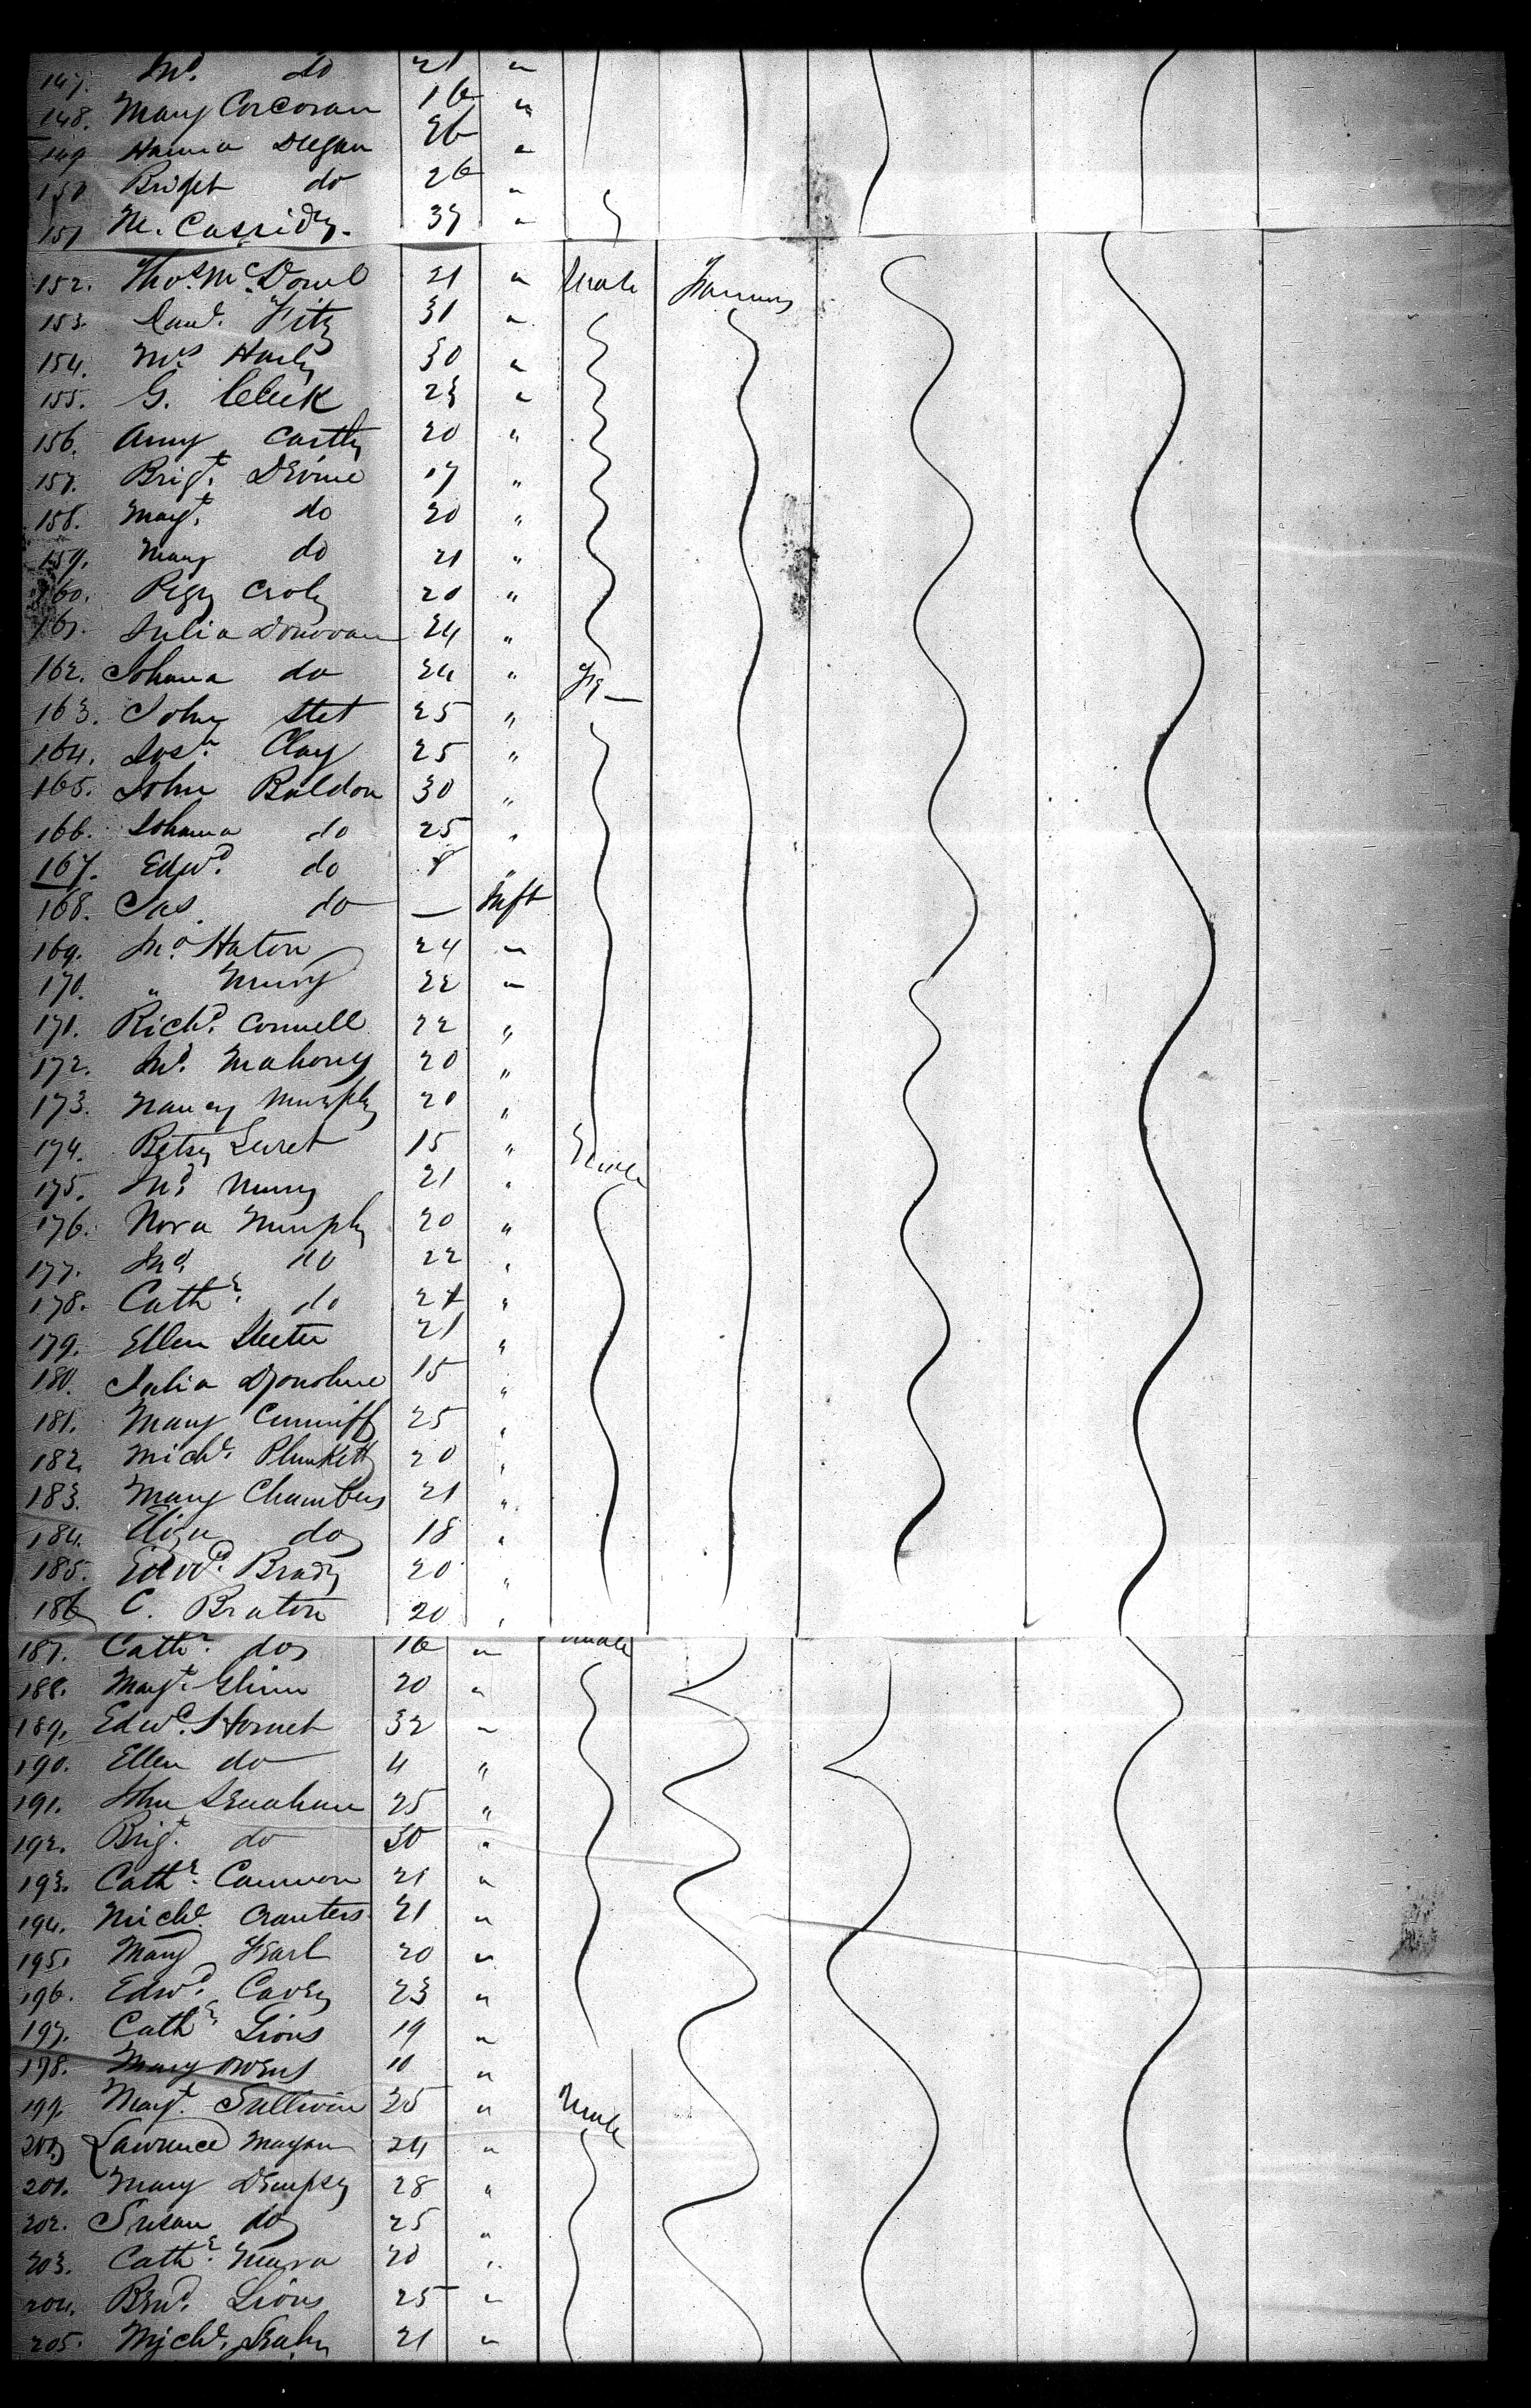 147. Jno. do 21 "
148. Mary Corcoran 16 "
149 Hanna Deegan 26 "
150 Bridget do 26 "
151 M. Cassidy. 37 "
152. Thos. McDonel 21 " Male Farmers
153. Fitz 31 "
154. Mrs 30 "
155. G. 23 "
156. Amy 20 "
157. Brigt. Devine 17 "
158. Magt. do 20 "
159. Mary do 21 "
160. Croly 20 "
161. Julia Donovan 24 "
162. Johana do 24 "
163. John Stet 25 "
164. Josh. Clay 25 "
165. John Baldon 30 "
166. Johana do 25 "
167. Edwd. do 8 "
168. Jas. do — Inft
169. Jno. Haton 24 "
170. " 22 "
171. Richd. Connell 22 "
172. Jno. Mahony 20 "
173. Nancy Murphy 20 "
174. Betsy 15 "
175. Jno. 21 "
176. Nora Murphy 20 "
177. Jno. do 22 "
178. Cathe. do "
179. Ellen 21 "
180. Julia Donohue 15 "
181. Mary Cunniff 25 "
182. Michl. Plunkett 20 "
183. Mary Chambers 21 "
184. Eliza do 18 "
185. Edwd. Brady 20 "
186 C. Braton 20 "
187. Cathe. do 16 "
188. Magt. Glinn 20 "
189. Edwd. 32 "
190. Ellen do 4 "
191. John Lenahan 25 "
192. Brigt. do 30 "
193. Cathe. Cannon 21 "
194. Michl. Cranters 21 "
195. Mary 20 "
196. Edwd. Cavey 23 "
197. Cathe. Lions 19 "
198. Mary Owens "
199. Magt. Sullivin 25 " Male
200 Lawrence Magan 24 "
201. Mary Dempsey 28 "
202. Susan do 25 "
203. Cathe. Mara 20 "
204. Lions 25 "
205. Michl. Leahy 21 "